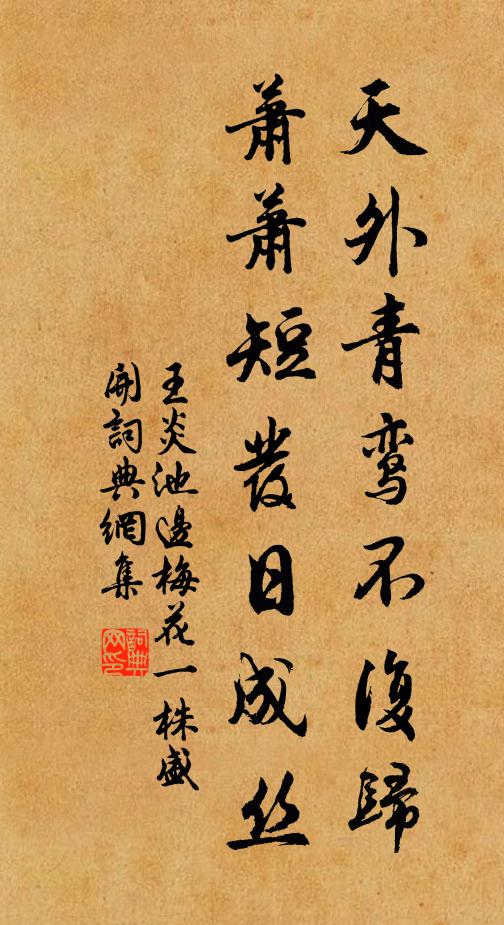 天外青鸾不復歸
蕭蕭短發日成丝
王炎池邊梅花一株盛
開詞典網集
詞典
网印